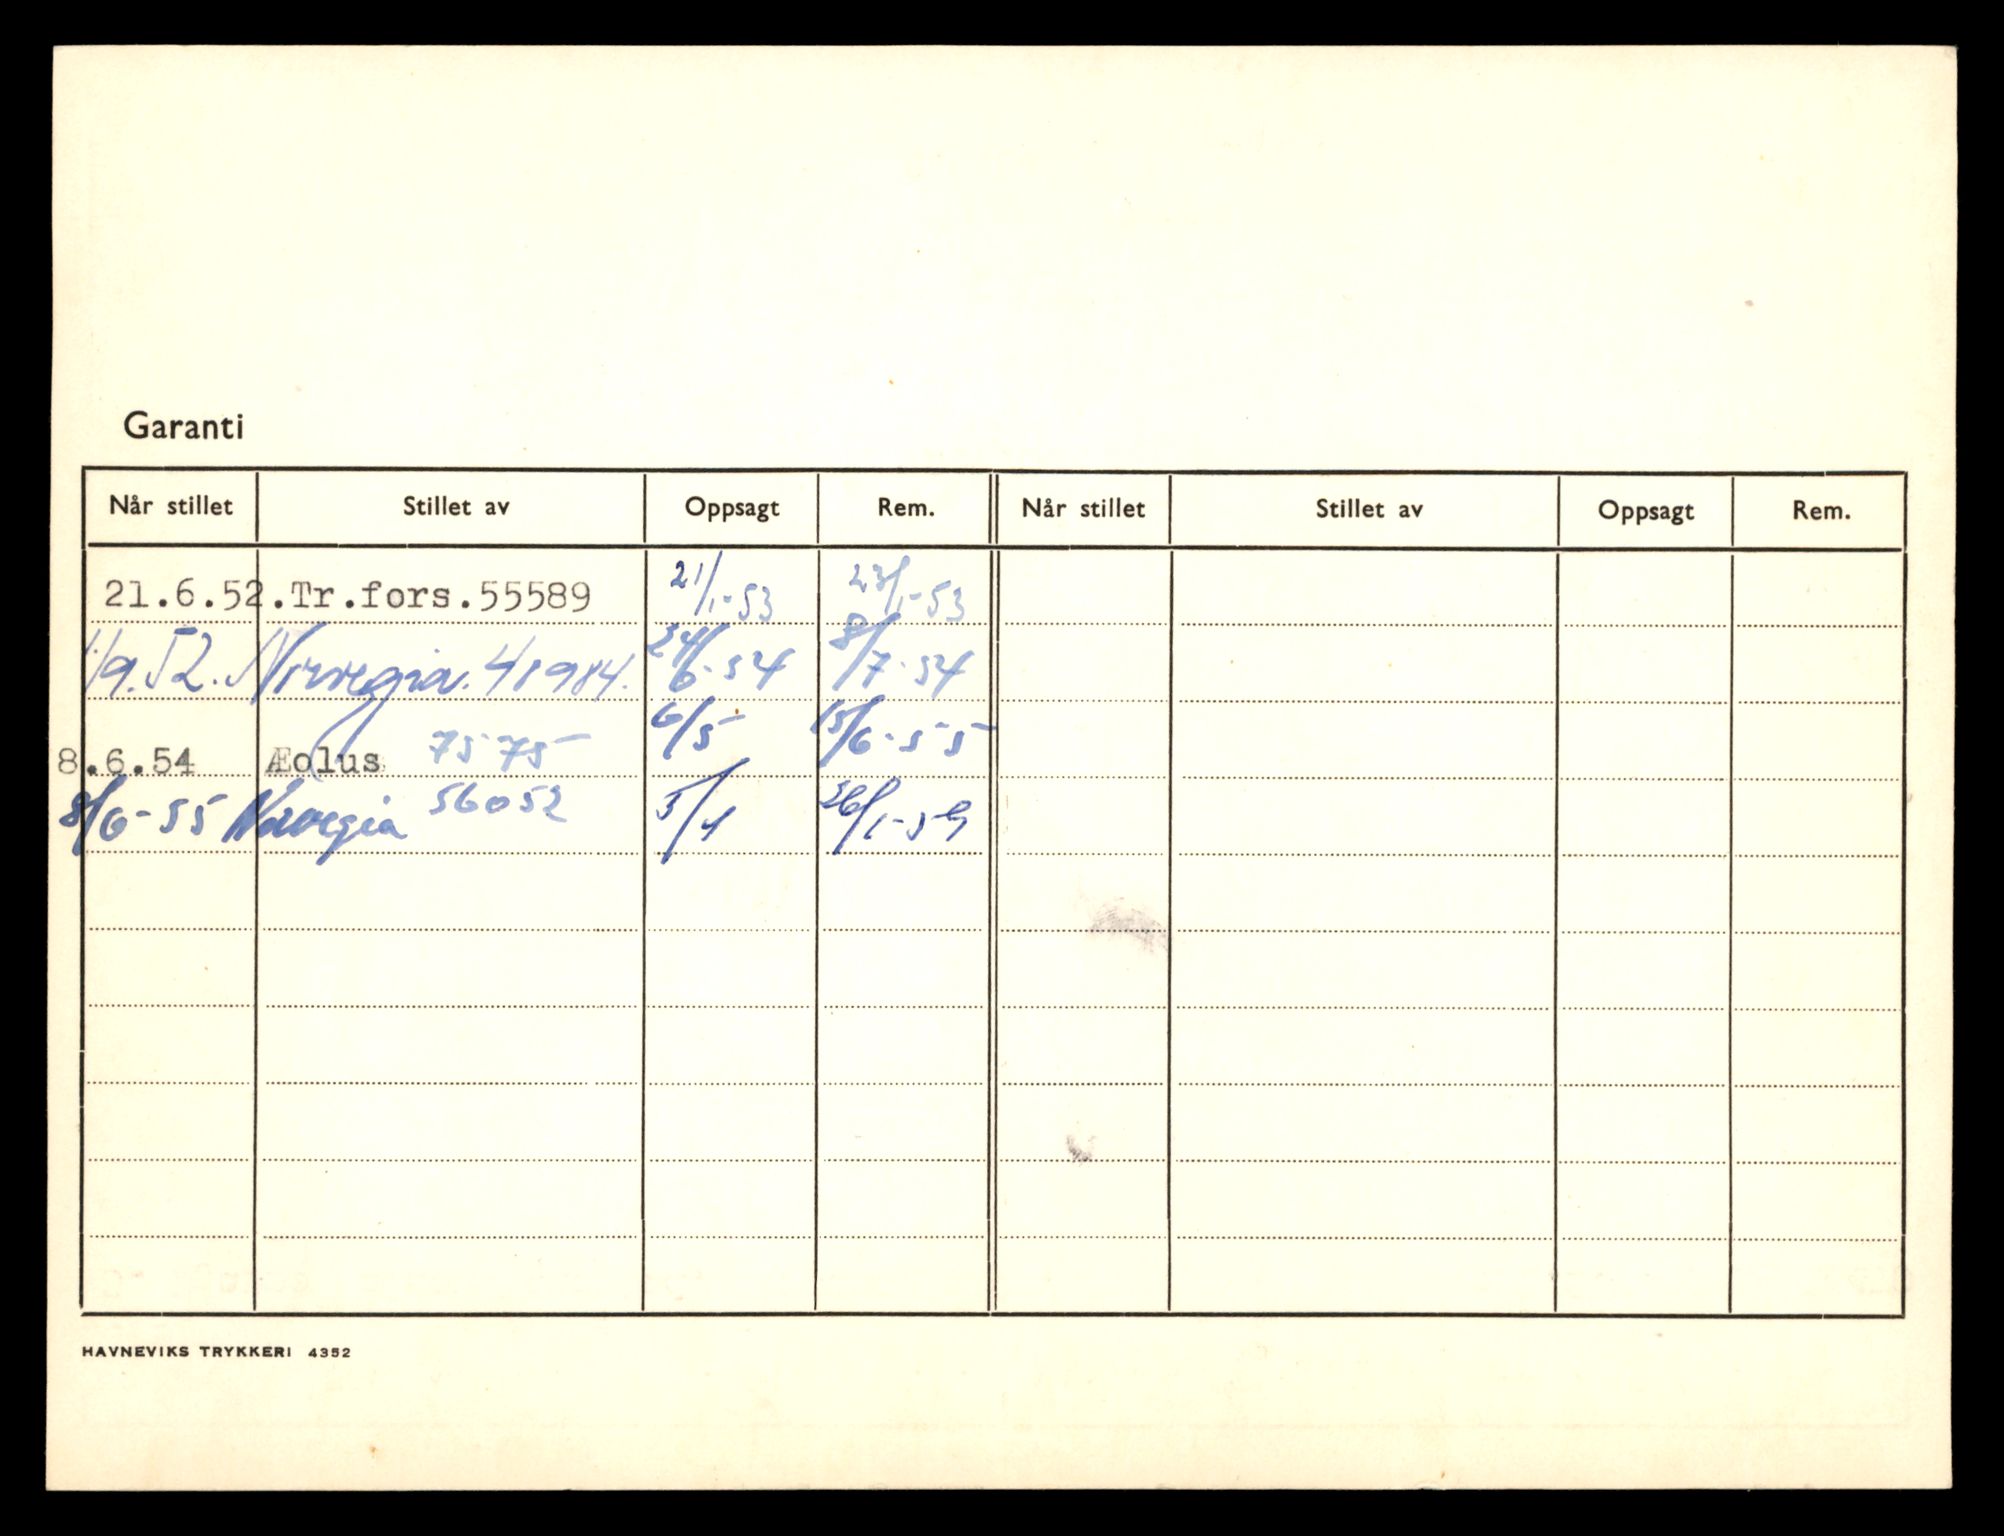 Garanti
Når stillet Stillet av Oppsagt Rem. Når stillet Stillet av Oppsagt Rem.
21.6.52.Tr.fors.55589 21/1-53 23/1-53
1/9.52. Norvegia. 41984. 24/6-54 8/7-54
8.6.54 Æolus 7575 6/5 15/6-55
8/6-55 Norvegia 56052 5/1 26/1-59
HAVNEVIKS TRYKKERI 4352